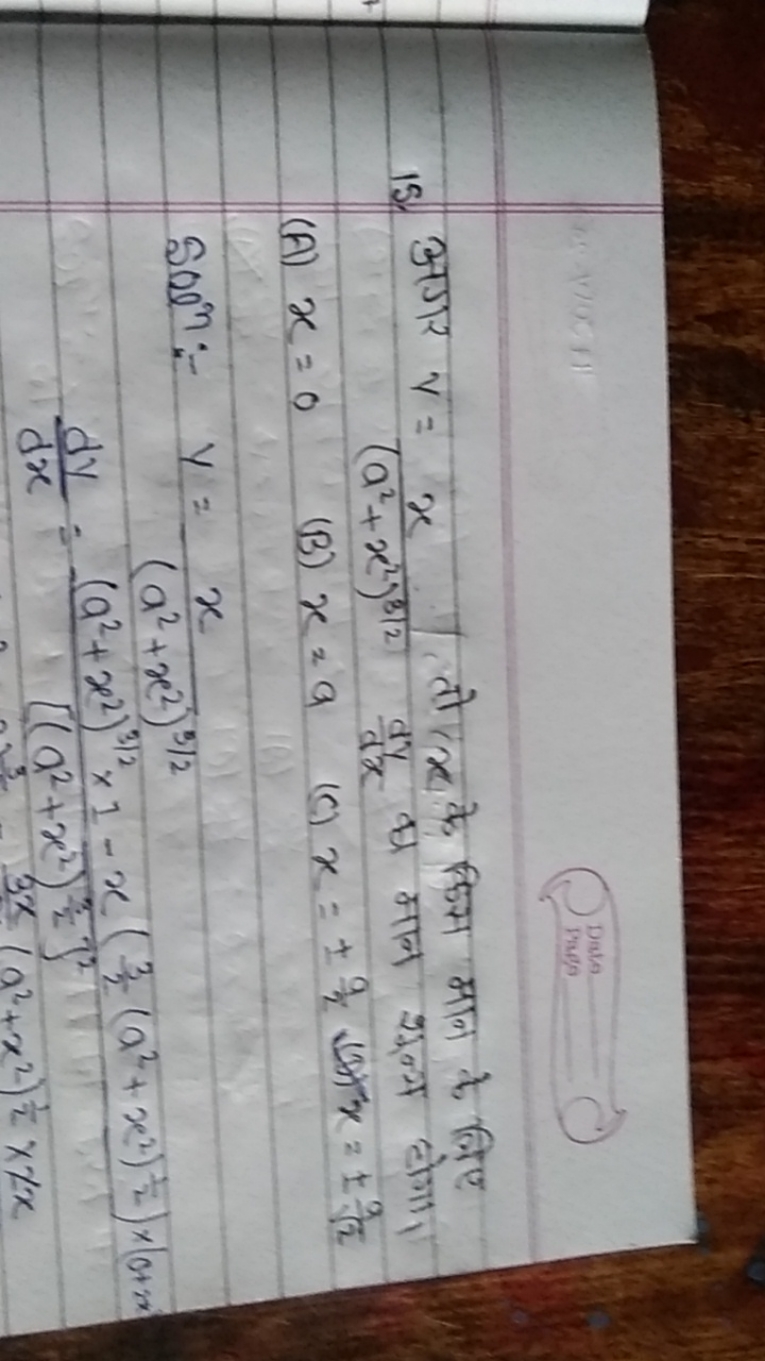 Date
Page
15. अगर y = x / (a² + x²)^3/2, तो x के किस मान के लिए
dy/dx का मान शून्य होगा।
(A) x = 0 (B) x = a (C) x = ± a/2 (D) x = ± a/√2
Solⁿ:- y = x / (a² + x²)^3/2
dy/dx = (a² + x²)^3/2 × 1 - x (3/2 (a² + x²)^1/2) × (0+2x / [(a² + x²)^3/2]²
3x (a² + x²)^1/2 × 2x